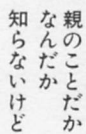 親のことだか
なんだか
知らないけど